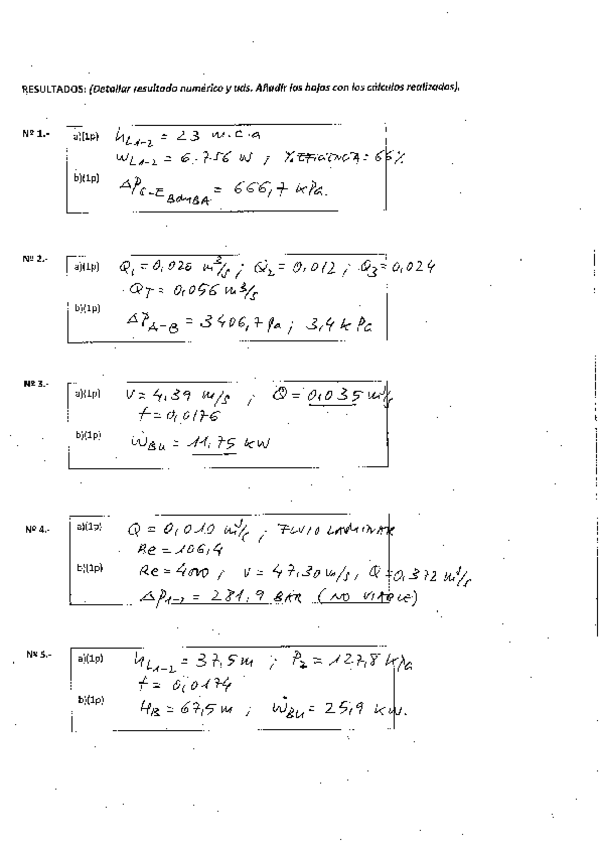 RESULTADOS: (Detallar resultado numérico y uds. Añadir las hojas con los cálculos realizados).
Nº 1.- a)(1p) hL1-2 = 23 m.c.a
ẆL1-2 = 6.756 W ; % EFICIENCIA = 66%
b)(1p) ΔPS-E BOMBA = 666,7 kPa.
Nº 2.- a)(1p) Q1 = 0,020 m³/s ; Q2 = 0,012 ; Q3 = 0,024
QT = 0,056 m³/s
b)(1p) ΔPA-B = 3406,7 Pa ; 3,4 kPa
Nº 3.- a)(1p) V = 4,39 m/s ; Q = 0,035 m³/s
f = 0,0176
b)(1p) ẆBH = 11,75 kW
Nº 4.- a)(1p) Q = 0,010 m³/s ; FLUJO LAMINAR
Re = 106,4
b)(1p) Re = 4000 ; V = 47,30 m/s, Q = 0,372 m³/s
ΔP1-2 = 281,9 BAR (NO VIABLE)
Nº 5.- a)(1p) hL1-2 = 37,5 m ; P2 = 127,8 kPa
f = 0,0174
b)(1p) HB = 67,5 m ; ẆBH = 25,9 kW.